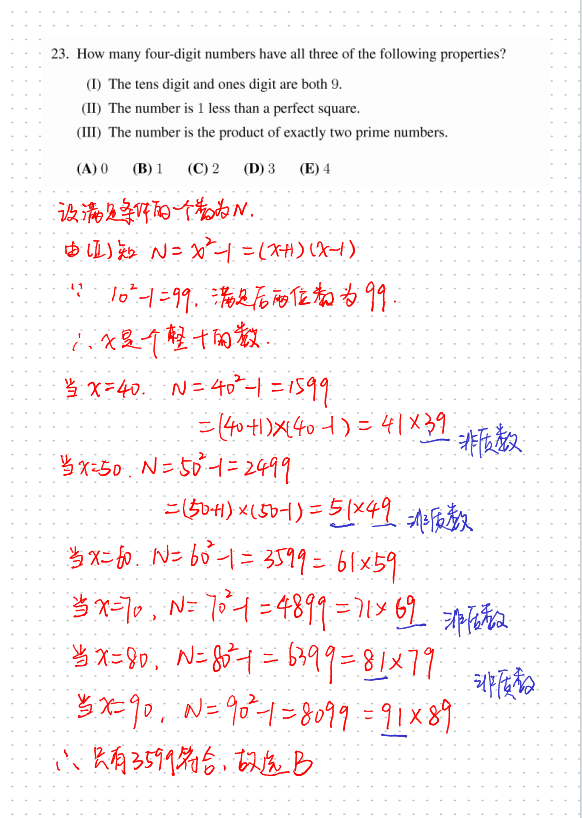 23. How many four-digit numbers have all three of the following properties?
(I) The tens digit and ones digit are both 9.
(II) The number is 1 less than a perfect square.
(III) The number is the product of exactly two prime numbers.
(A) 0 (B) 1 (C) 2 (D) 3 (E) 4
设满足条件的一个数为N.
由(II)知 N = x²-1 = (x+1)(x-1)
∵ 10²-1=99, 满足后两位数为99.
∴ x是个整十的数.
当 x=40. N = 40²-1 = 1599
= (40+1)×(40-1) = 41×39 非质数
当x=50. N = 50²-1 = 2499
= (50+1)×(50-1) = 51×49 非质数
当x=60. N = 60²-1 = 3599 = 61×59
当 x=70, N = 70²-1 = 4899 = 71×69 非质数
当 x=80, N = 80²-1 = 6399 = 81×79
当 x=90, N = 90²-1 = 8099 = 91×89 非质数
∴ 只有3599符合, 故选 B